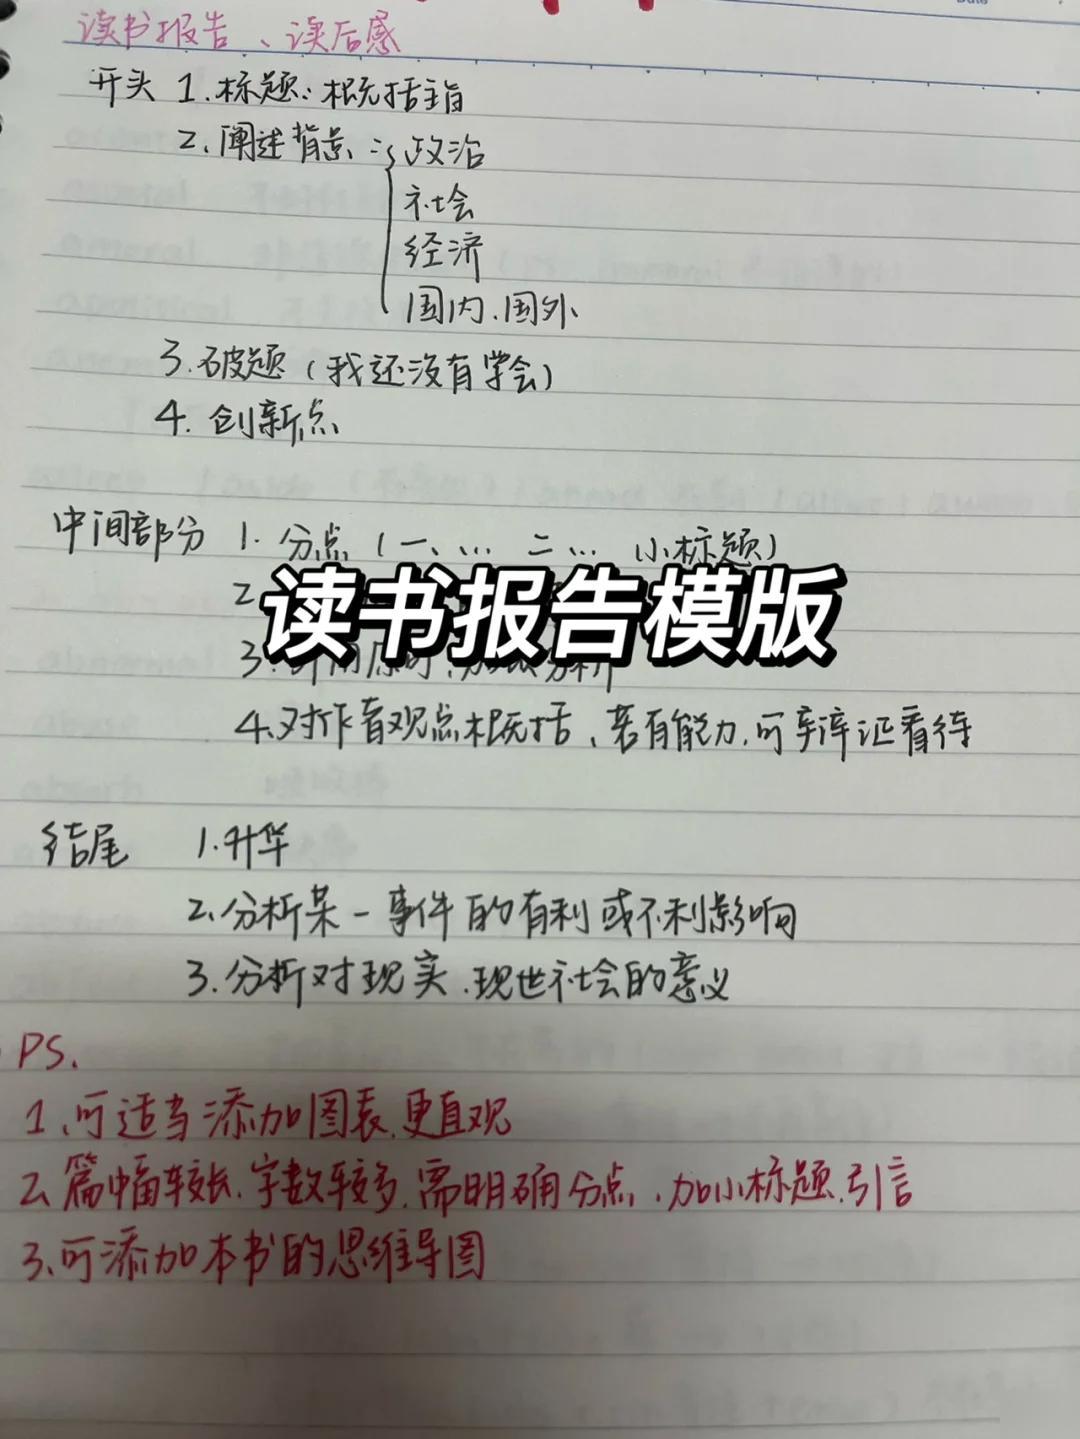 读书报告、读后感
开头 1.标题:概括主旨
2.阐述背景:政治
社会
经济
国内、国外
3.破题(我还没有学会)
4.创新点
中间部分 1.分点(一、… 二… 小标题)
2
读书报告模版
3.引用原句,加以分析
4.对作者观点概括、若有能力,可辩证看待
结尾 1.升华
2.分析某一事件的有利或不利影响
3.分析对现实、现世社会的意义
PS.
1、可适当添加图表,更直观
2、篇幅较长、字数较多,需明确分点、加小标题、引言
3、可添加本书的思维导图